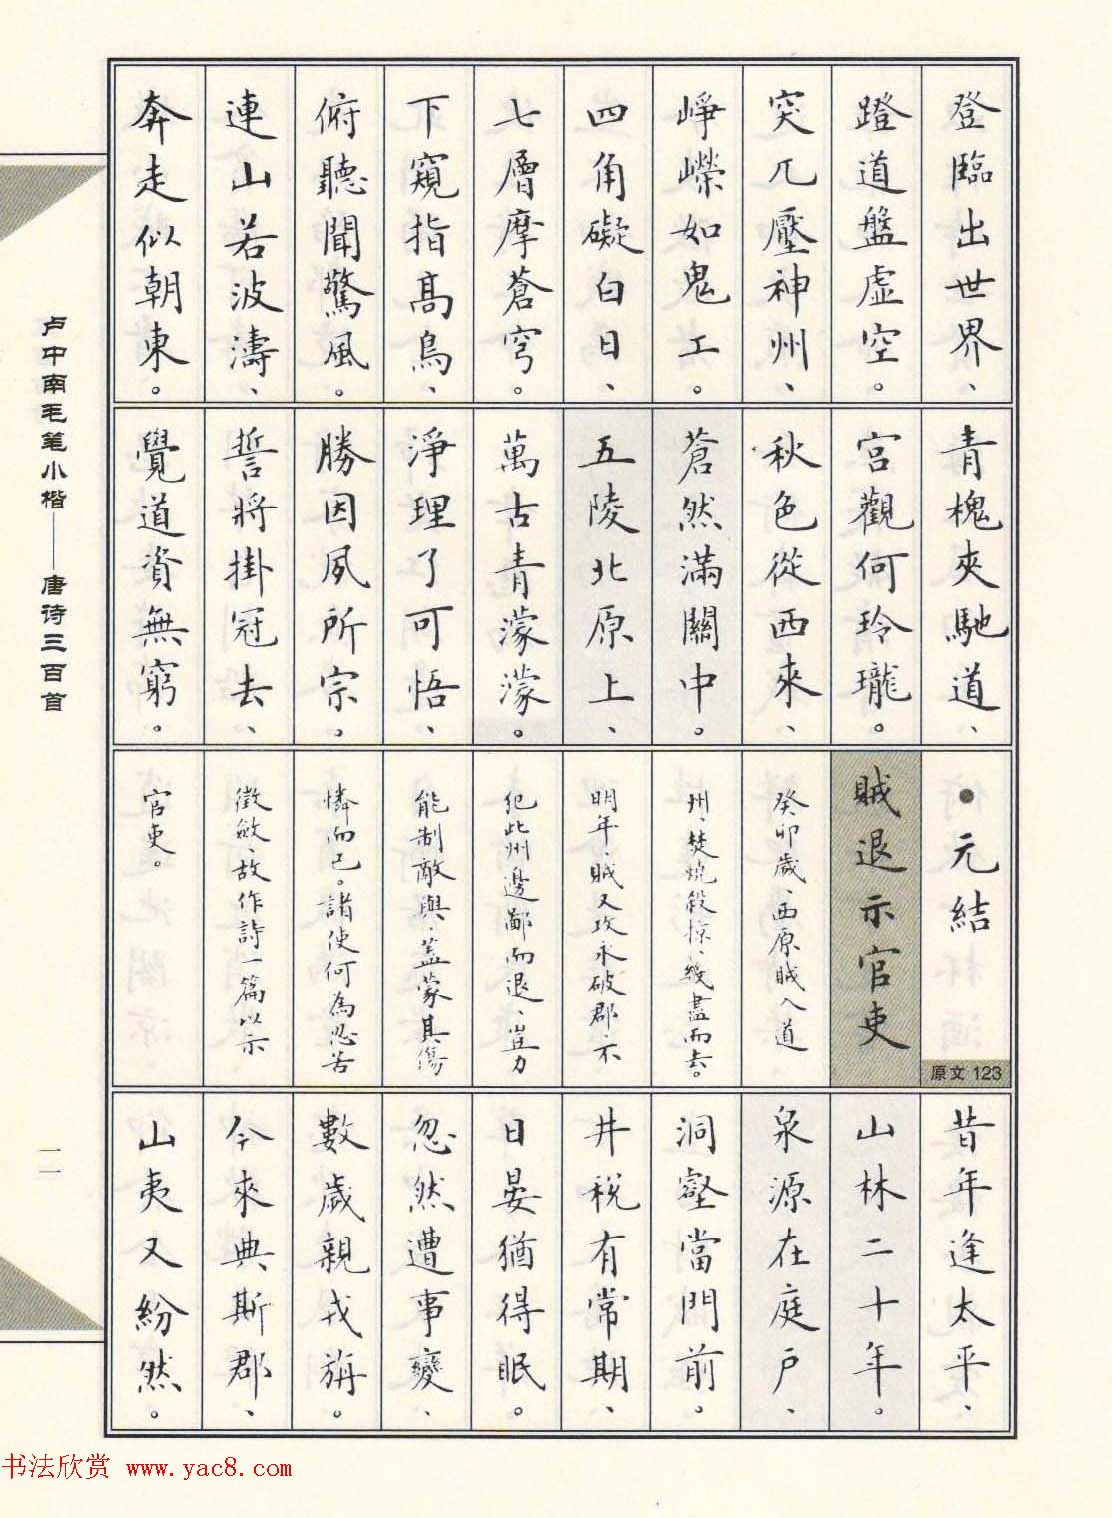 登臨出世界、
蹬道盤虛空。
突兀壓神州、
崢嶸如鬼工。
四角礙白日、
七層摩蒼穹。
下窺指高鳥、
俯聽聞驚風。
連山若波濤、
奔走似朝東。
青槐夾馳道、
宮觀何玲瓏。
秋色從西來、
蒼然滿關中。
五陵北原上、
萬古青濛濛。
淨理了可悟、
勝因夙所宗。
誓將掛冠去、
覺道資無窮。
•元結
原文 123
賊退示官吏
癸卯歲、西原賊入道
州、焚燒殺掠、幾盡而去。
明年、賊又攻永破郡、不
犯此州邊鄙而退、豈力
能制敵與、蓋蒙其傷
憐而已。諸使何為忍苦
徵斂、故作詩一篇以示
官吏。
昔年逢太平、
山林二十年。
泉源在庭戶、
洞壑當門前。
井稅有常期、
日晏猶得眠。
忽然遭事變、
數歲親戎旃。
今來典斯郡、
山夷又紛然。
卢中南毛笔小楷——唐诗三百首
一一
书法欣赏 www.yac8.com